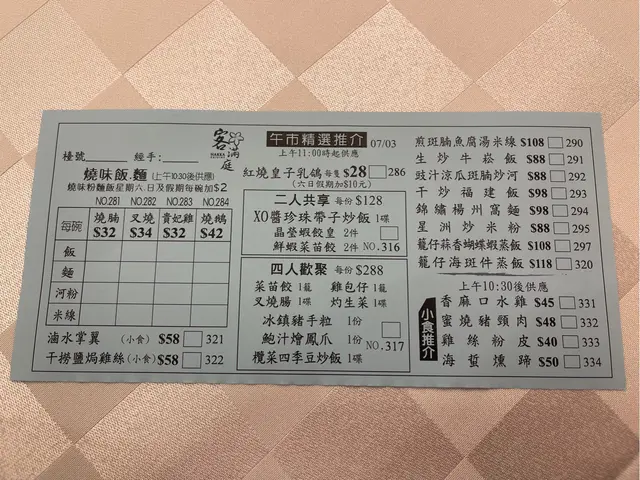 檯號 經手:
燒味飯.麵 (上午10:30後供應)
燒味粉麵飯星期六.日及假期每碗加$2
NO.281 NO.282 NO.283 NO.284
每碗 燒腩 叉燒 貴妃雞 燒鵝
$32 $34 $32 $42
飯
麵
河粉
米線
滷水掌翼 (小食) $58 321
干撈鹽焗雞絲 (小食) $58 322
客滿庭
午市精選推介 07/03
上午11:00時起供應
紅燒皇子乳鴿 每隻 $28 286
(六日假期加$10元)
二人共享 每份 $128
XO醬珍珠帶子炒飯 1碟
晶瑩蝦餃皇 2件
鮮蝦菜苗餃 2件 NO.316
四人歡聚 每份 $288
菜苗餃 1籠 雞包仔 1籠
叉燒腸 1碟 灼生菜 1碟
冰鎮豬手粒 1份
鮑汁燴鳳爪 1份
欖菜四季豆炒飯 1碟
NO.317
煎斑腩魚腐湯米線 $108 290
生炒牛崧飯 $88 291
豉汁涼瓜斑腩炒河 $88 292
干炒福建麵 $98 293
錦繡楊州窩麵 $98 294
星洲炒米粉 $88 295
籠仔蒜香蝴蝶蝦蒸飯 $108 297
籠仔海斑件蒸飯 $118 320
上午10:30後供應
小食推介
香麻口水雞 $45 331
蜜燒豬頸肉 $48 332
雞絲粉皮 $40 333
海蜇燻蹄 $50 334